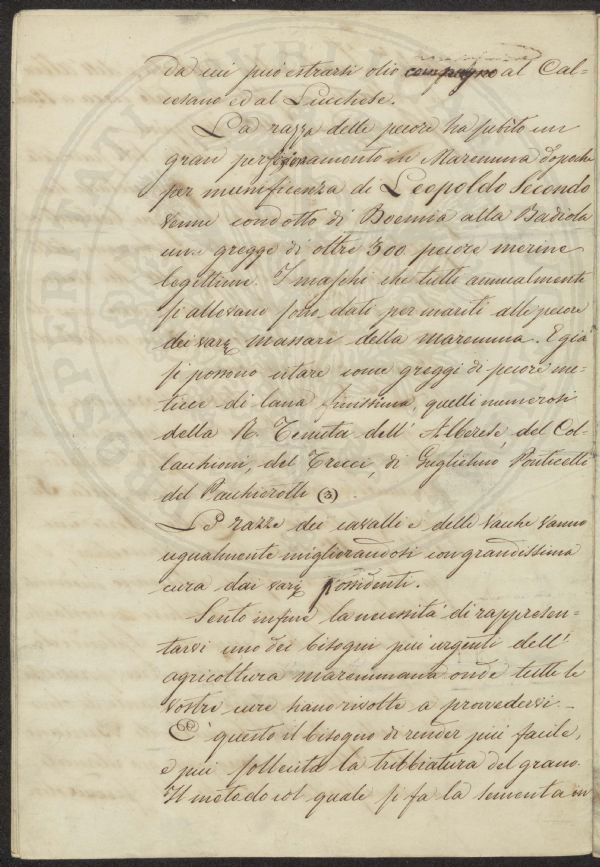 da cui può estrarsi olio compagno al Cal=
cesano ed al Lucchese.
La razza delle pecore ha subito un
gran perfezionamento in Maremma dopoche
per munificenza di Leopoldo Secondo
venne condotto di Boemia alla Badiola
un gregge di oltre 300 pecore merine
legittime. I maschi che tutti annualmente
si allevano sono dati per mariti alle pecore
dei varj massari della maremma. E già
si possono citare come greggi di pecore me=
ticce di lana finissima, quelli numerosi
della R. Tenuta dell' Alberese, del Col=
lacchioni, del Grecci, di Guglielmo Ponticelli
del Pacchierotti (3)
Le razze dei cavalli e delle vacche vanno
ugualmente migliorandosi con grandissima
cura dai varj possidenti.
Sento infine la necessità di rappresen=
tarvi uno dei bisogni più urgenti dell'
agricoltura maremmana onde tutte le
vostre cure siano rivolte a provvedervi.
È questo il bisogno di render più facile,
e più sollecita la tribbiatura del grano.
Il metodo col quale si fa la sementa in
PROSPERITATI